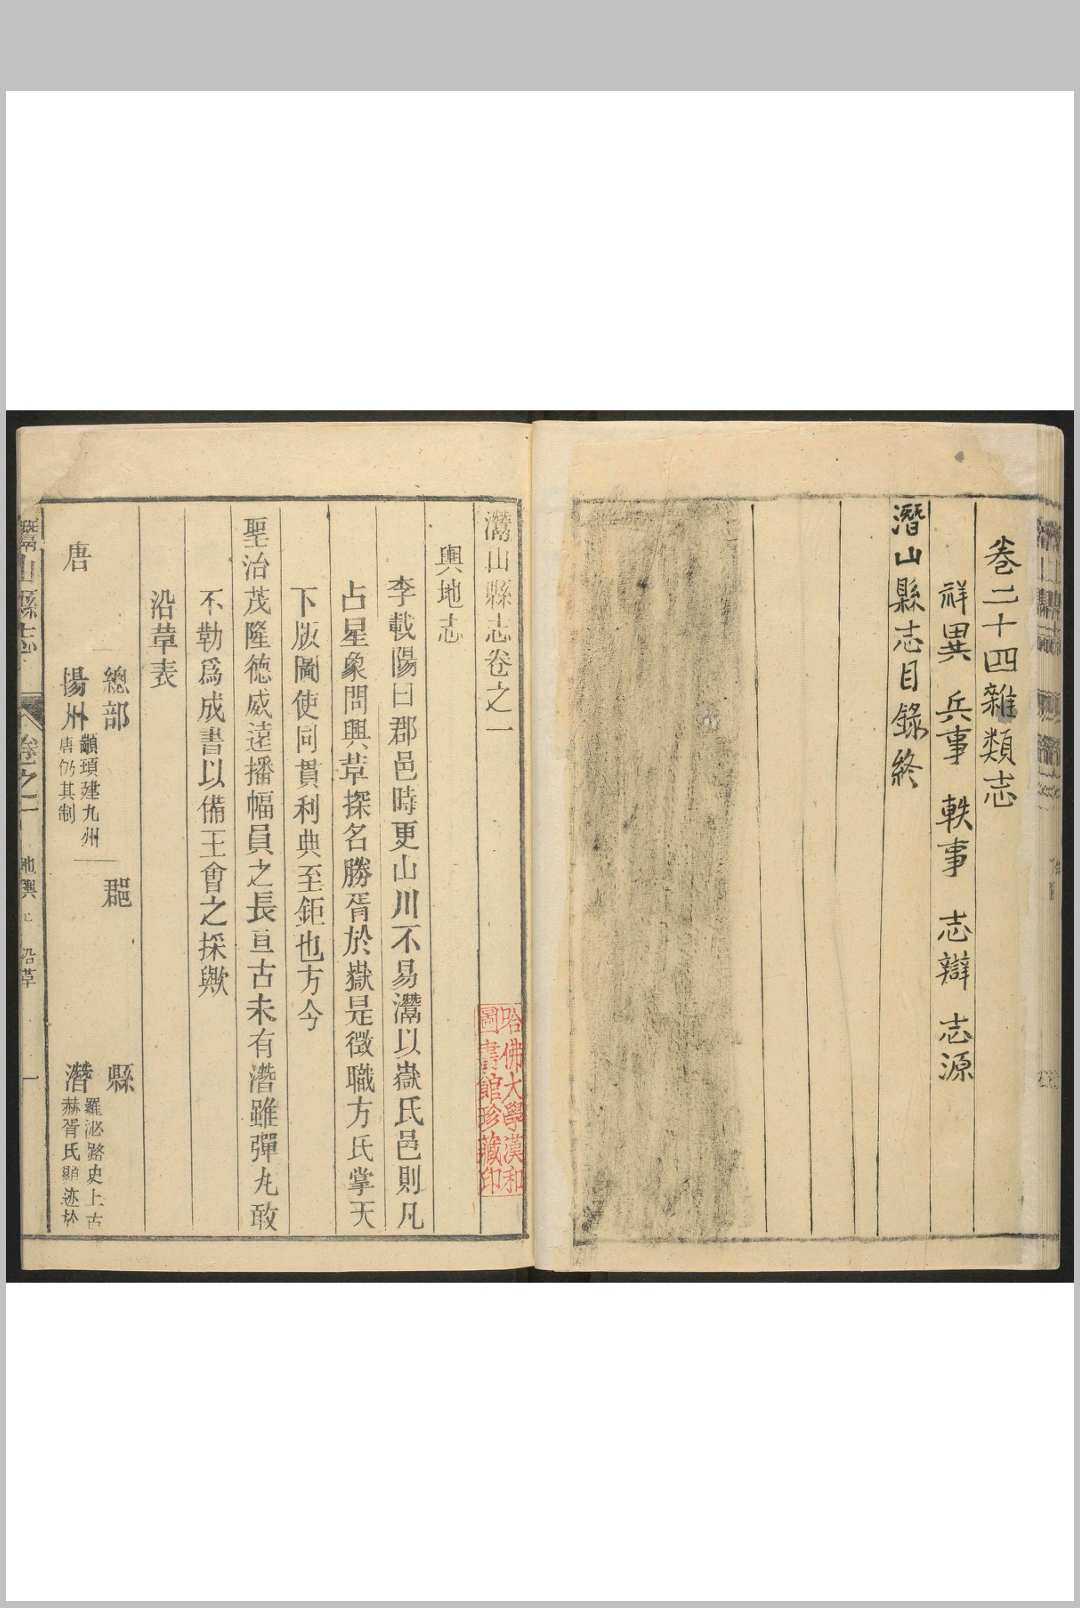 卷二十四雜類志
祥異 兵事 軼事 志辯 志源
潛山縣志目錄終
灊山縣志卷之一
輿地志
李載陽曰郡邑時更山川不易灊以嶽氏邑則凡
占星象問興革探名勝胥於嶽是徵職方氏掌天
下版圖使同貫利典至鉅也方今
聖治茂隆德威遠播幅員之長亘古未有潛雖彈丸敢
不勒爲成書以備王會之採歟
沿革表
總部 郡 縣
唐 揚州 顓頊建九州
唐仍其制
潛 羅泌路史上古
赫胥氏顯迹於
灊山縣志 卷之一 沿革 一
哈佛大學漢和
圖書館珍藏印